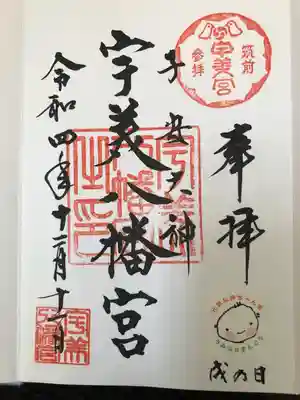 筑前
宇美宮
参拝
奉拝
戌の日
子安大神
宇美八幡宮
令和四年十二月十一日
宇美八幡宮